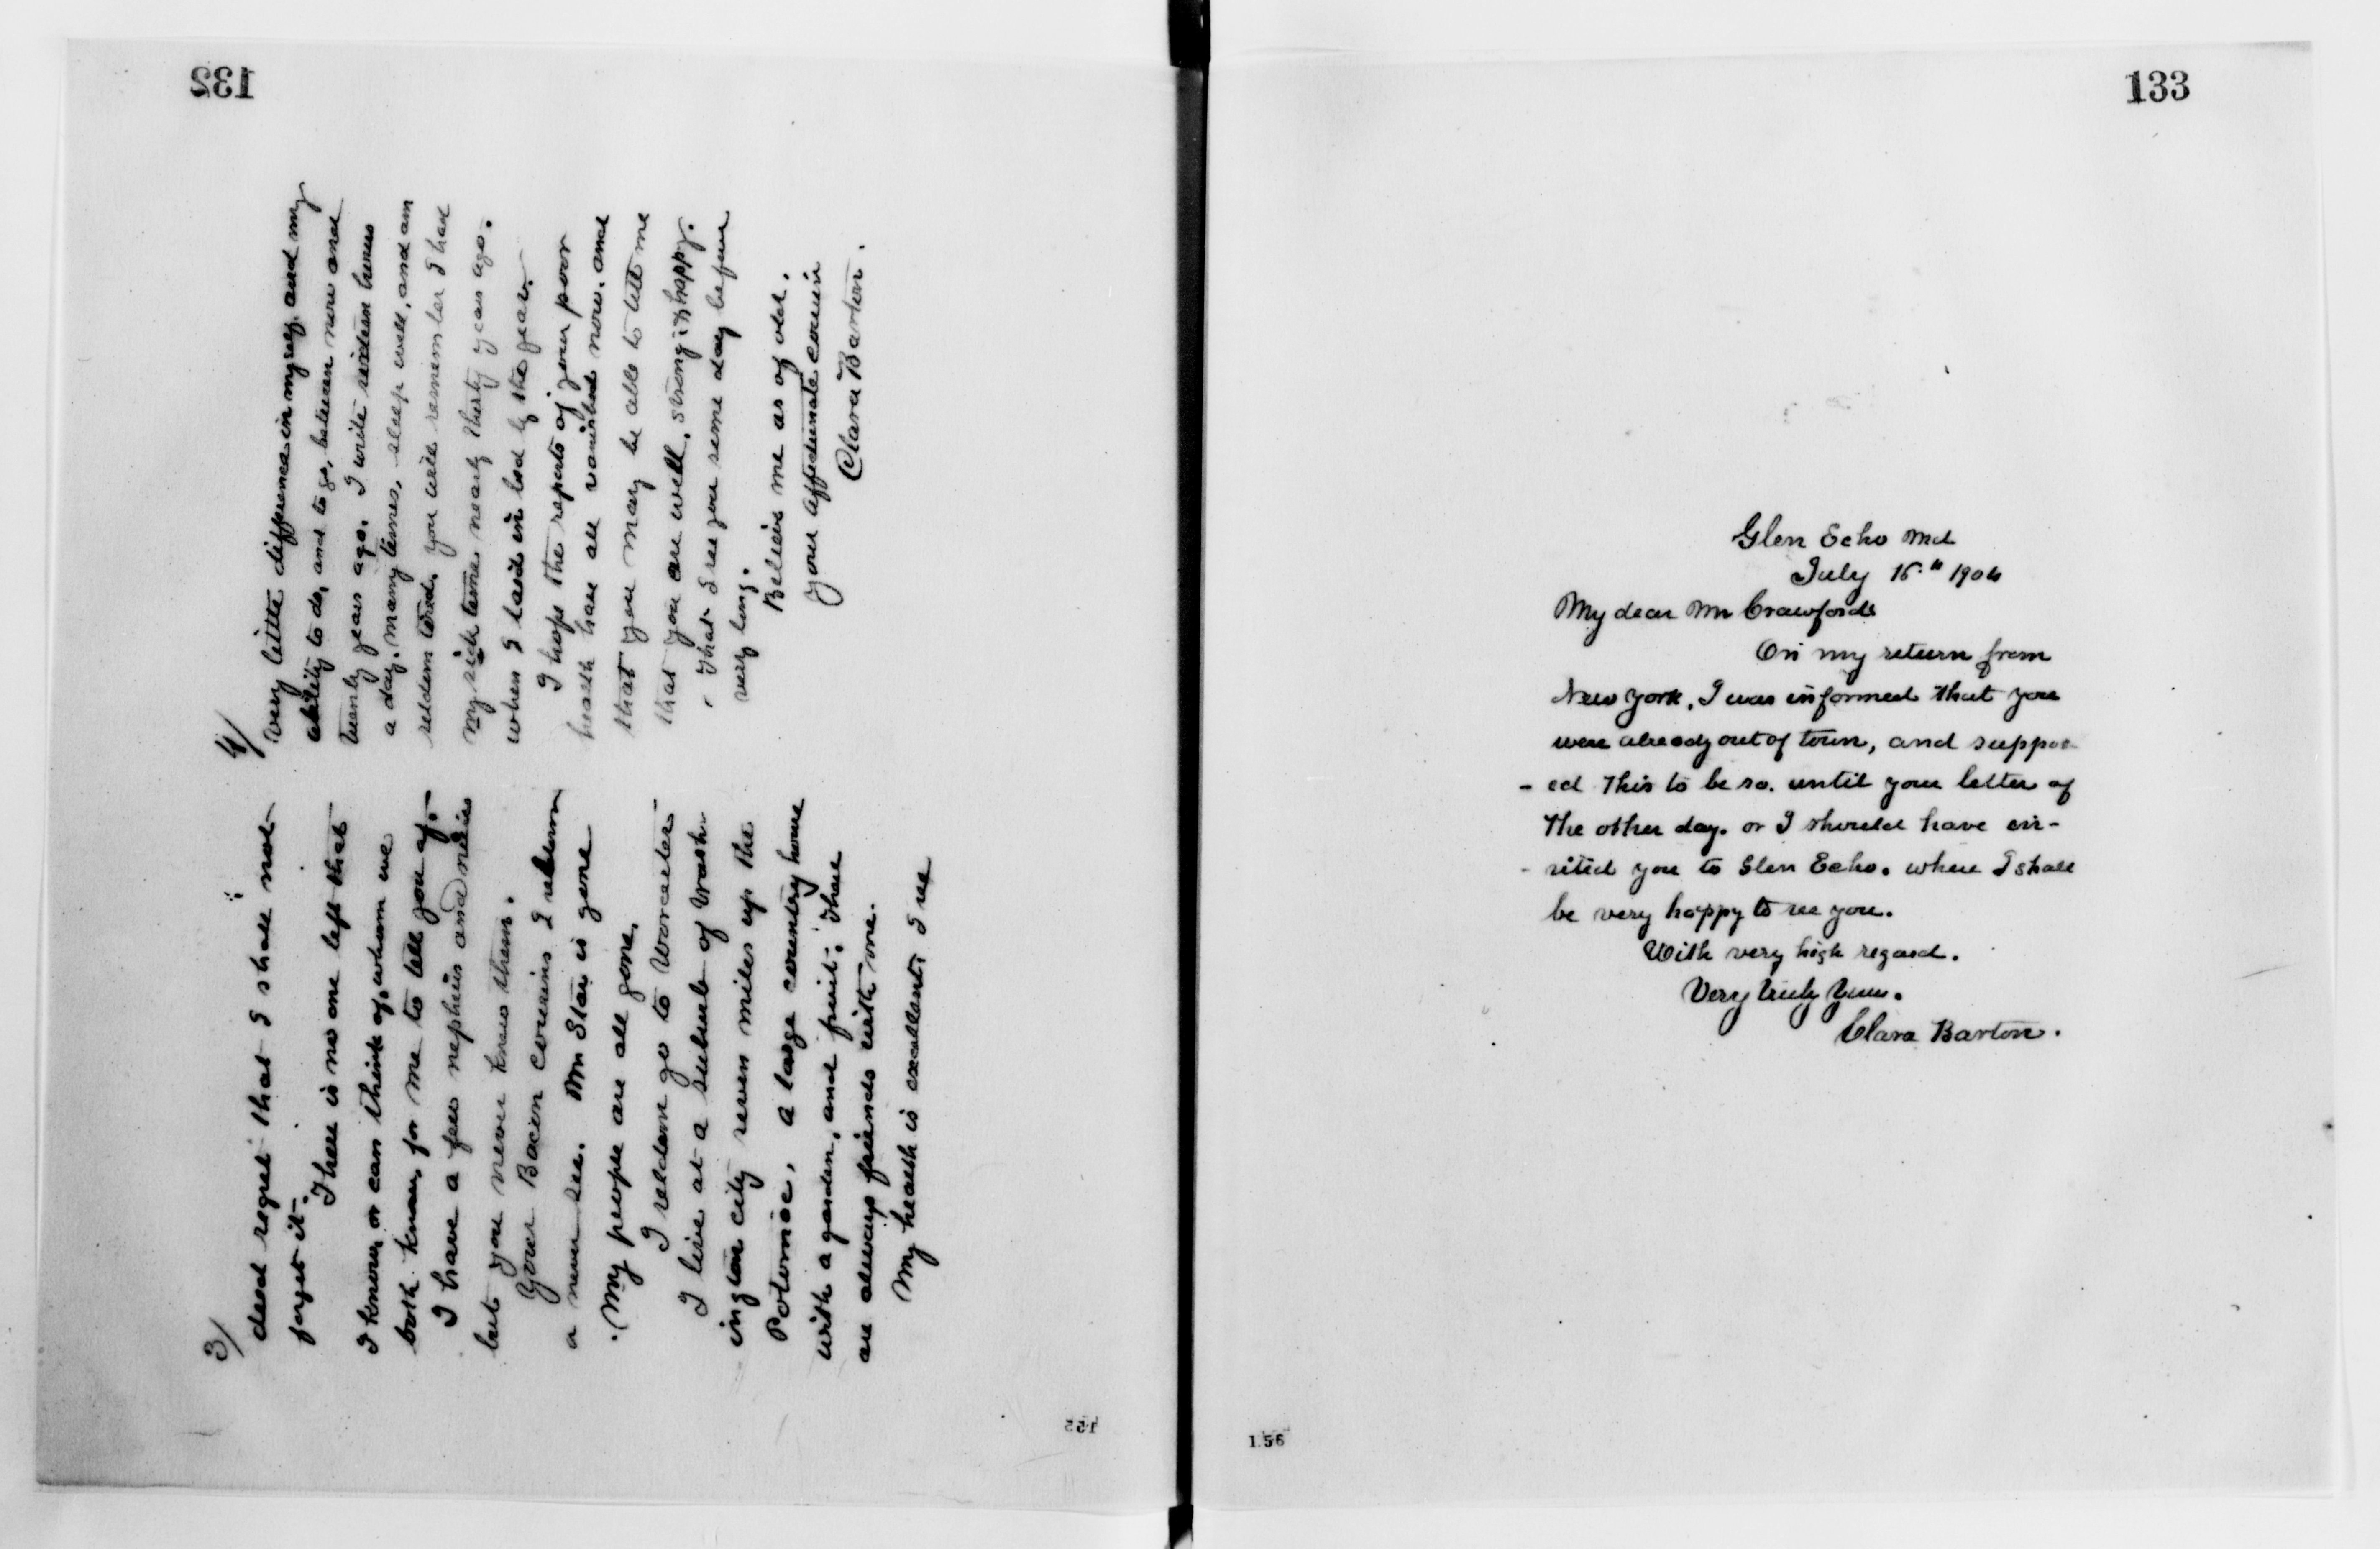 132
3/
dead regret that I shall not
forget it.
There is no one left that
I know, or can think of, whom we
both know, for me to tell you of.
I have a few nephews and nieces
but you never knew them.
Your Bacon cousins I seldom
or never see. Mr Star is gone
My people are all gone.
I seldom go to Worcester
I live at a suburb of Wash-
ington city seven miles up the
Potomac, a large country house
with a garden, and fruit; There
are always friends with me.
My health is excellent, I see
4/
very little difference in myself, and my
ability to do, and to go, between now and
twenty years ago. I write sixteen hours
a day, many times, sleep well, and am
seldom tired. you will remember I had
my sick time nearly thirty years ago.
when I laid in bed by the year.
I hope the reports of your poor
health have all vanished now, and
that you may be able to tell me
that you are well, strong & happy.
That I see you some day before
very long.
Believe me as of old.
your affectionate cousin
Clara Barton.
155
133
Glen Echo Md
July 16.th 1904
My dear Mr Crawford
On my return from
New York, I was informed that you
were already out of town, and suppos
- ed this to be so. until your letter of
the other day. or I should have in-
- vited you to Glen Echo. where I shall
be very happy to see you.
With very high regard.
Very truly yours.
Clara Barton.
156